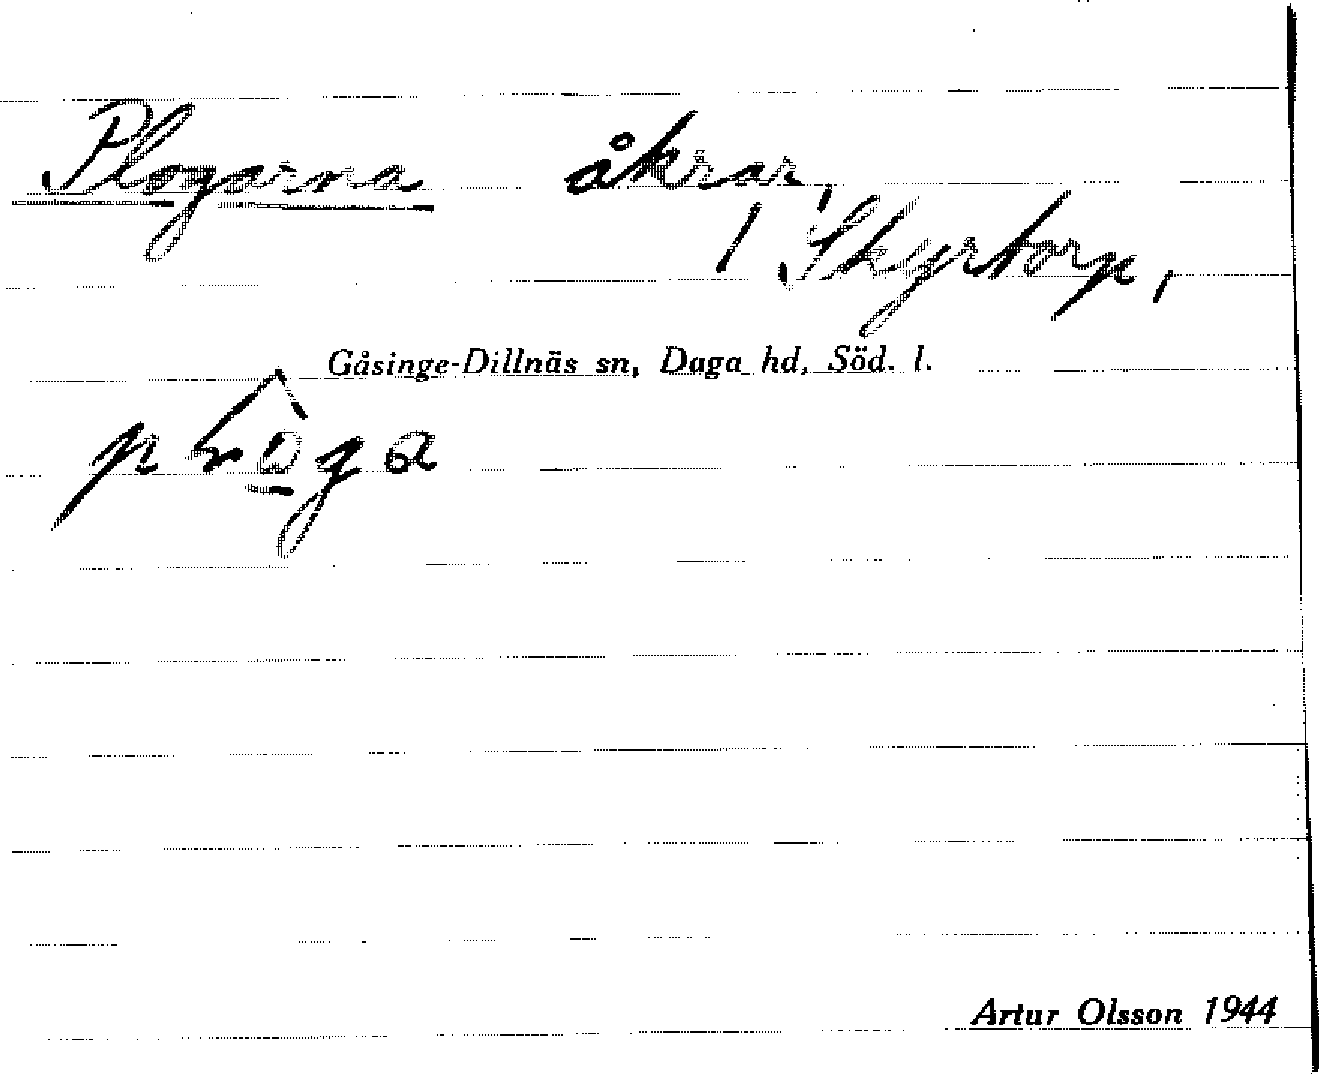 Plogarna åkrar,
/ Skyrtorp,
Gåsinge-Dillnäs sn, Daga hd, Söd. l.
Artur Olsson 1944